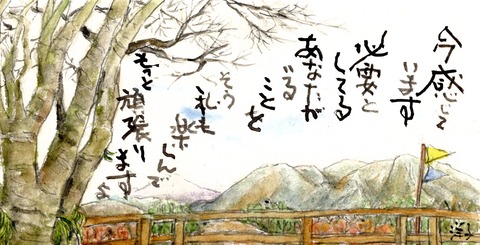 今感じて
います
必要と
してる
あなたが
いる
ことを
そう
私も
楽しんで
もっと
頑張りますよ